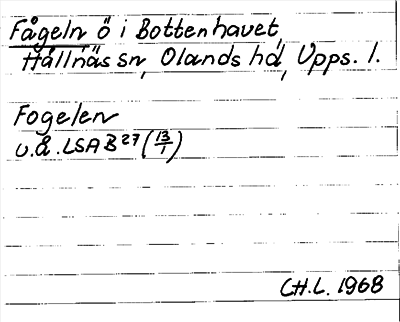 Fågeln ö i Bottenhavet,
Hållnäs sn, Olands hd, Upps. l.
Fogelen
u.å. LSA B 27 (13/1)
C.H.L. 1968